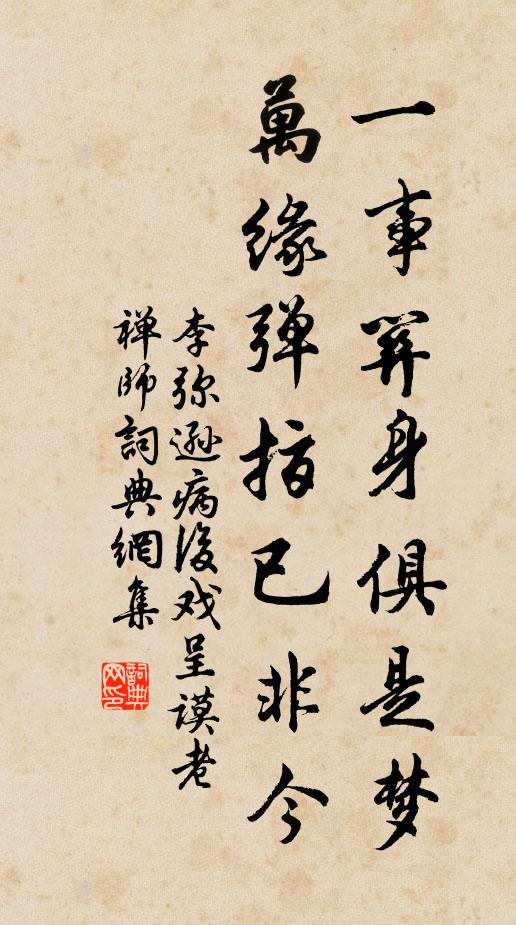 一事関身俱是梦
萬缘弹指已非今
李弥遜病後戏呈谟老
禅师詞典網集
詞典网印